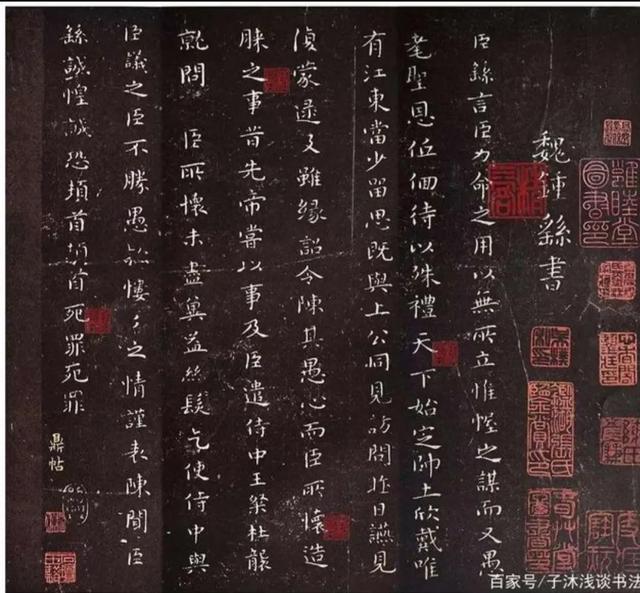 魏鍾繇書
臣繇言臣力命之用以無所立惟幄之謀而又愚
耄聖恩低佪待以殊禮天下始定帥土欣戴唯
有江東當少留思既與上公同見訪問昨日讌見
偵蒙逮及雖緣詔令陳其愚心而臣所懷造
膝之事昔先帝嘗以事及臣遣侍中王粲杜襲
就問 臣所懷未盡冀益絲髮乞使侍中與
臣議之臣不勝愚欵慺々之情謹表陳聞臣
繇誠惶誠恐頓首頓首死罪死罪
鼎帖
雍睦堂
圖書印
百家号/子沐浅谈书法